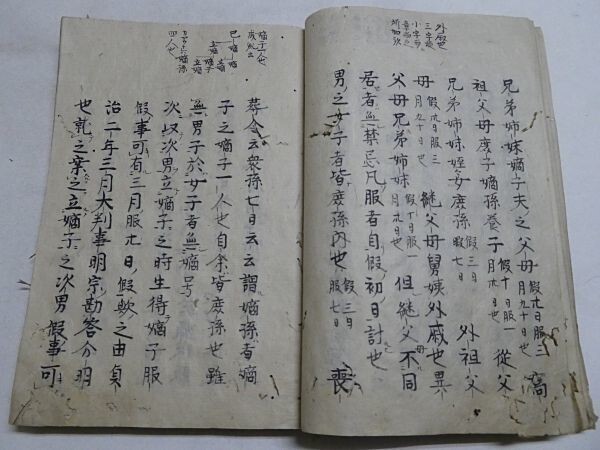 兄弟姉妹嫡子夫之父母 假廿日服三月九十日也 高
祖父母庶子嫡孫養子 假十日服一月卅日也 從父
兄弟姉妹姪女庶孫 假三日服七日 外祖父
母 假廿日服三月九十日也 継父母舅姨外戚也異
父母兄弟姉妹 假十日服一月卅日也 但継父不同
居者無禁忌凡服者自假初日計也
男之女子者皆庶孫内也 假三日服七日 喪
葬令云衆孫七日云云謂嫡孫者嫡
子之嫡子一人也自余皆庶孫也雖
無男子於女子者無嫡号
次以次男立嫡子之時生得嫡子服
假事可有三月服廿日假歟之由貞
治二年三月大判事明宗勘答分明
也就之案之立嫡子之次男假事可